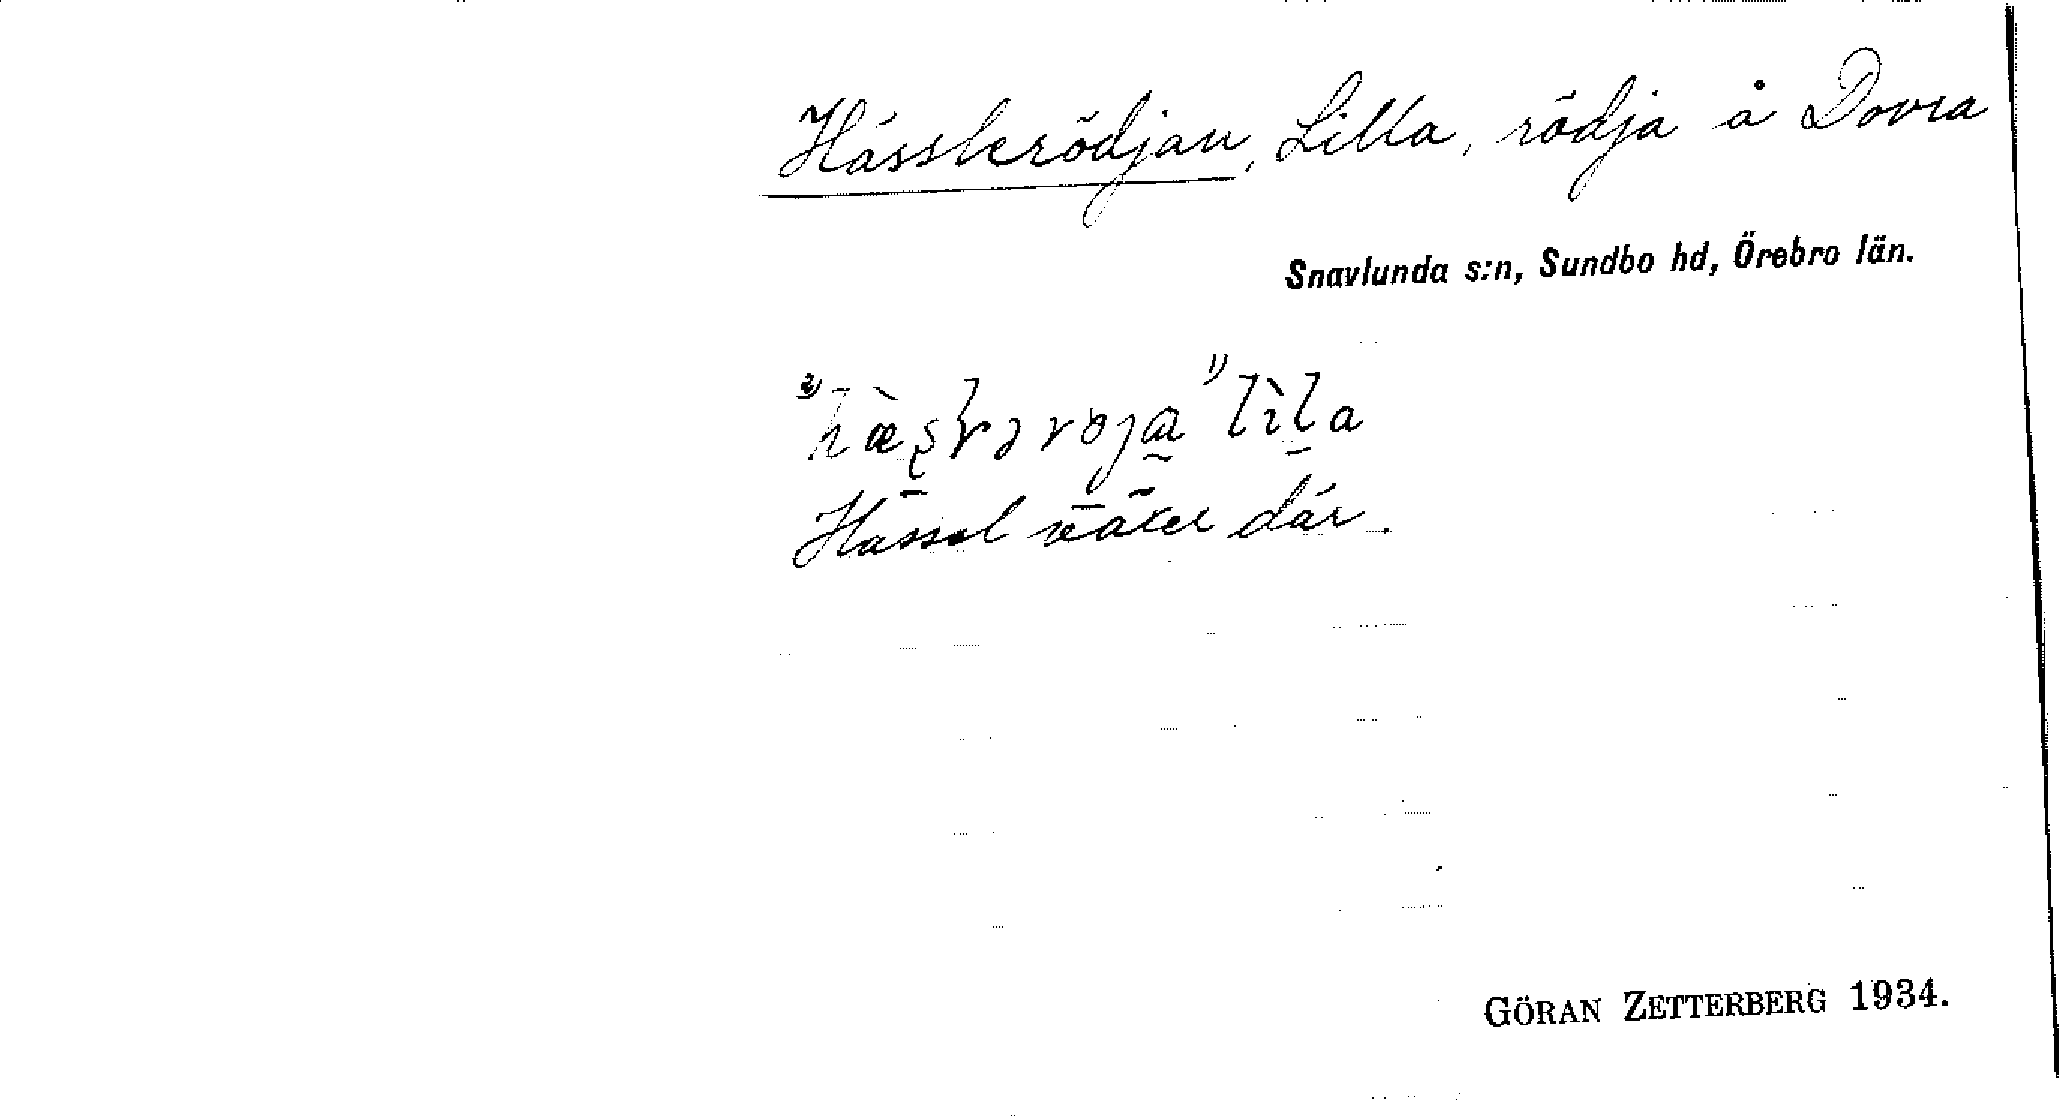 Hässlerödjan, Lilla, rödja å Dovra
Snavlunda s:n, Sundbo hd, Örebro län.
Hassel växer där.
GÖRAN ZETTERBERG 1934.